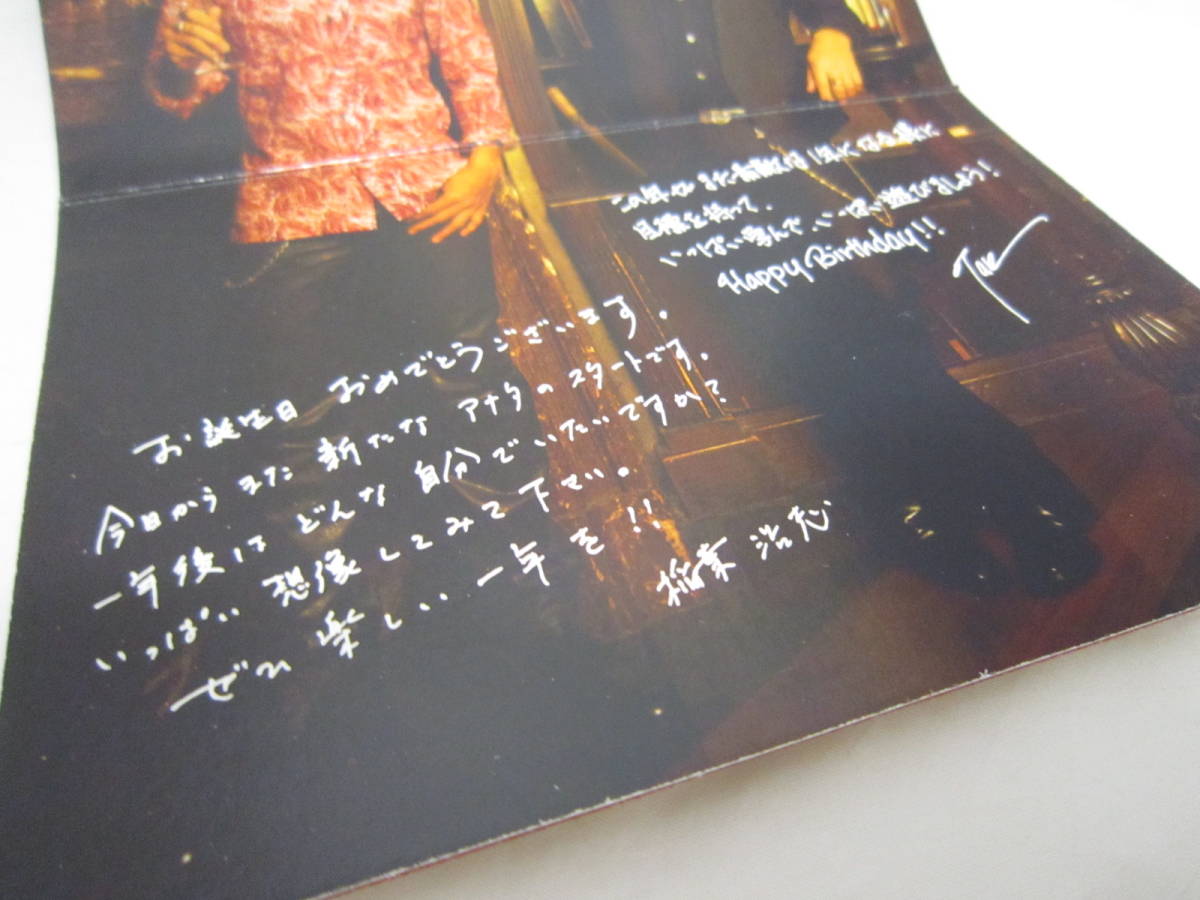 目標を持って、
いっぱい学んで、いっぱい遊びましょう!
Happy Birthday!!
Tak
お誕生日 おめでとうございます。
今日からまた 新たな アナタのスタートです。
一年後は どんな 自分でいたいですか?
いっぱい 想像してみて下さい。
ぜひ 楽しい 一年を!!
稲葉 浩志